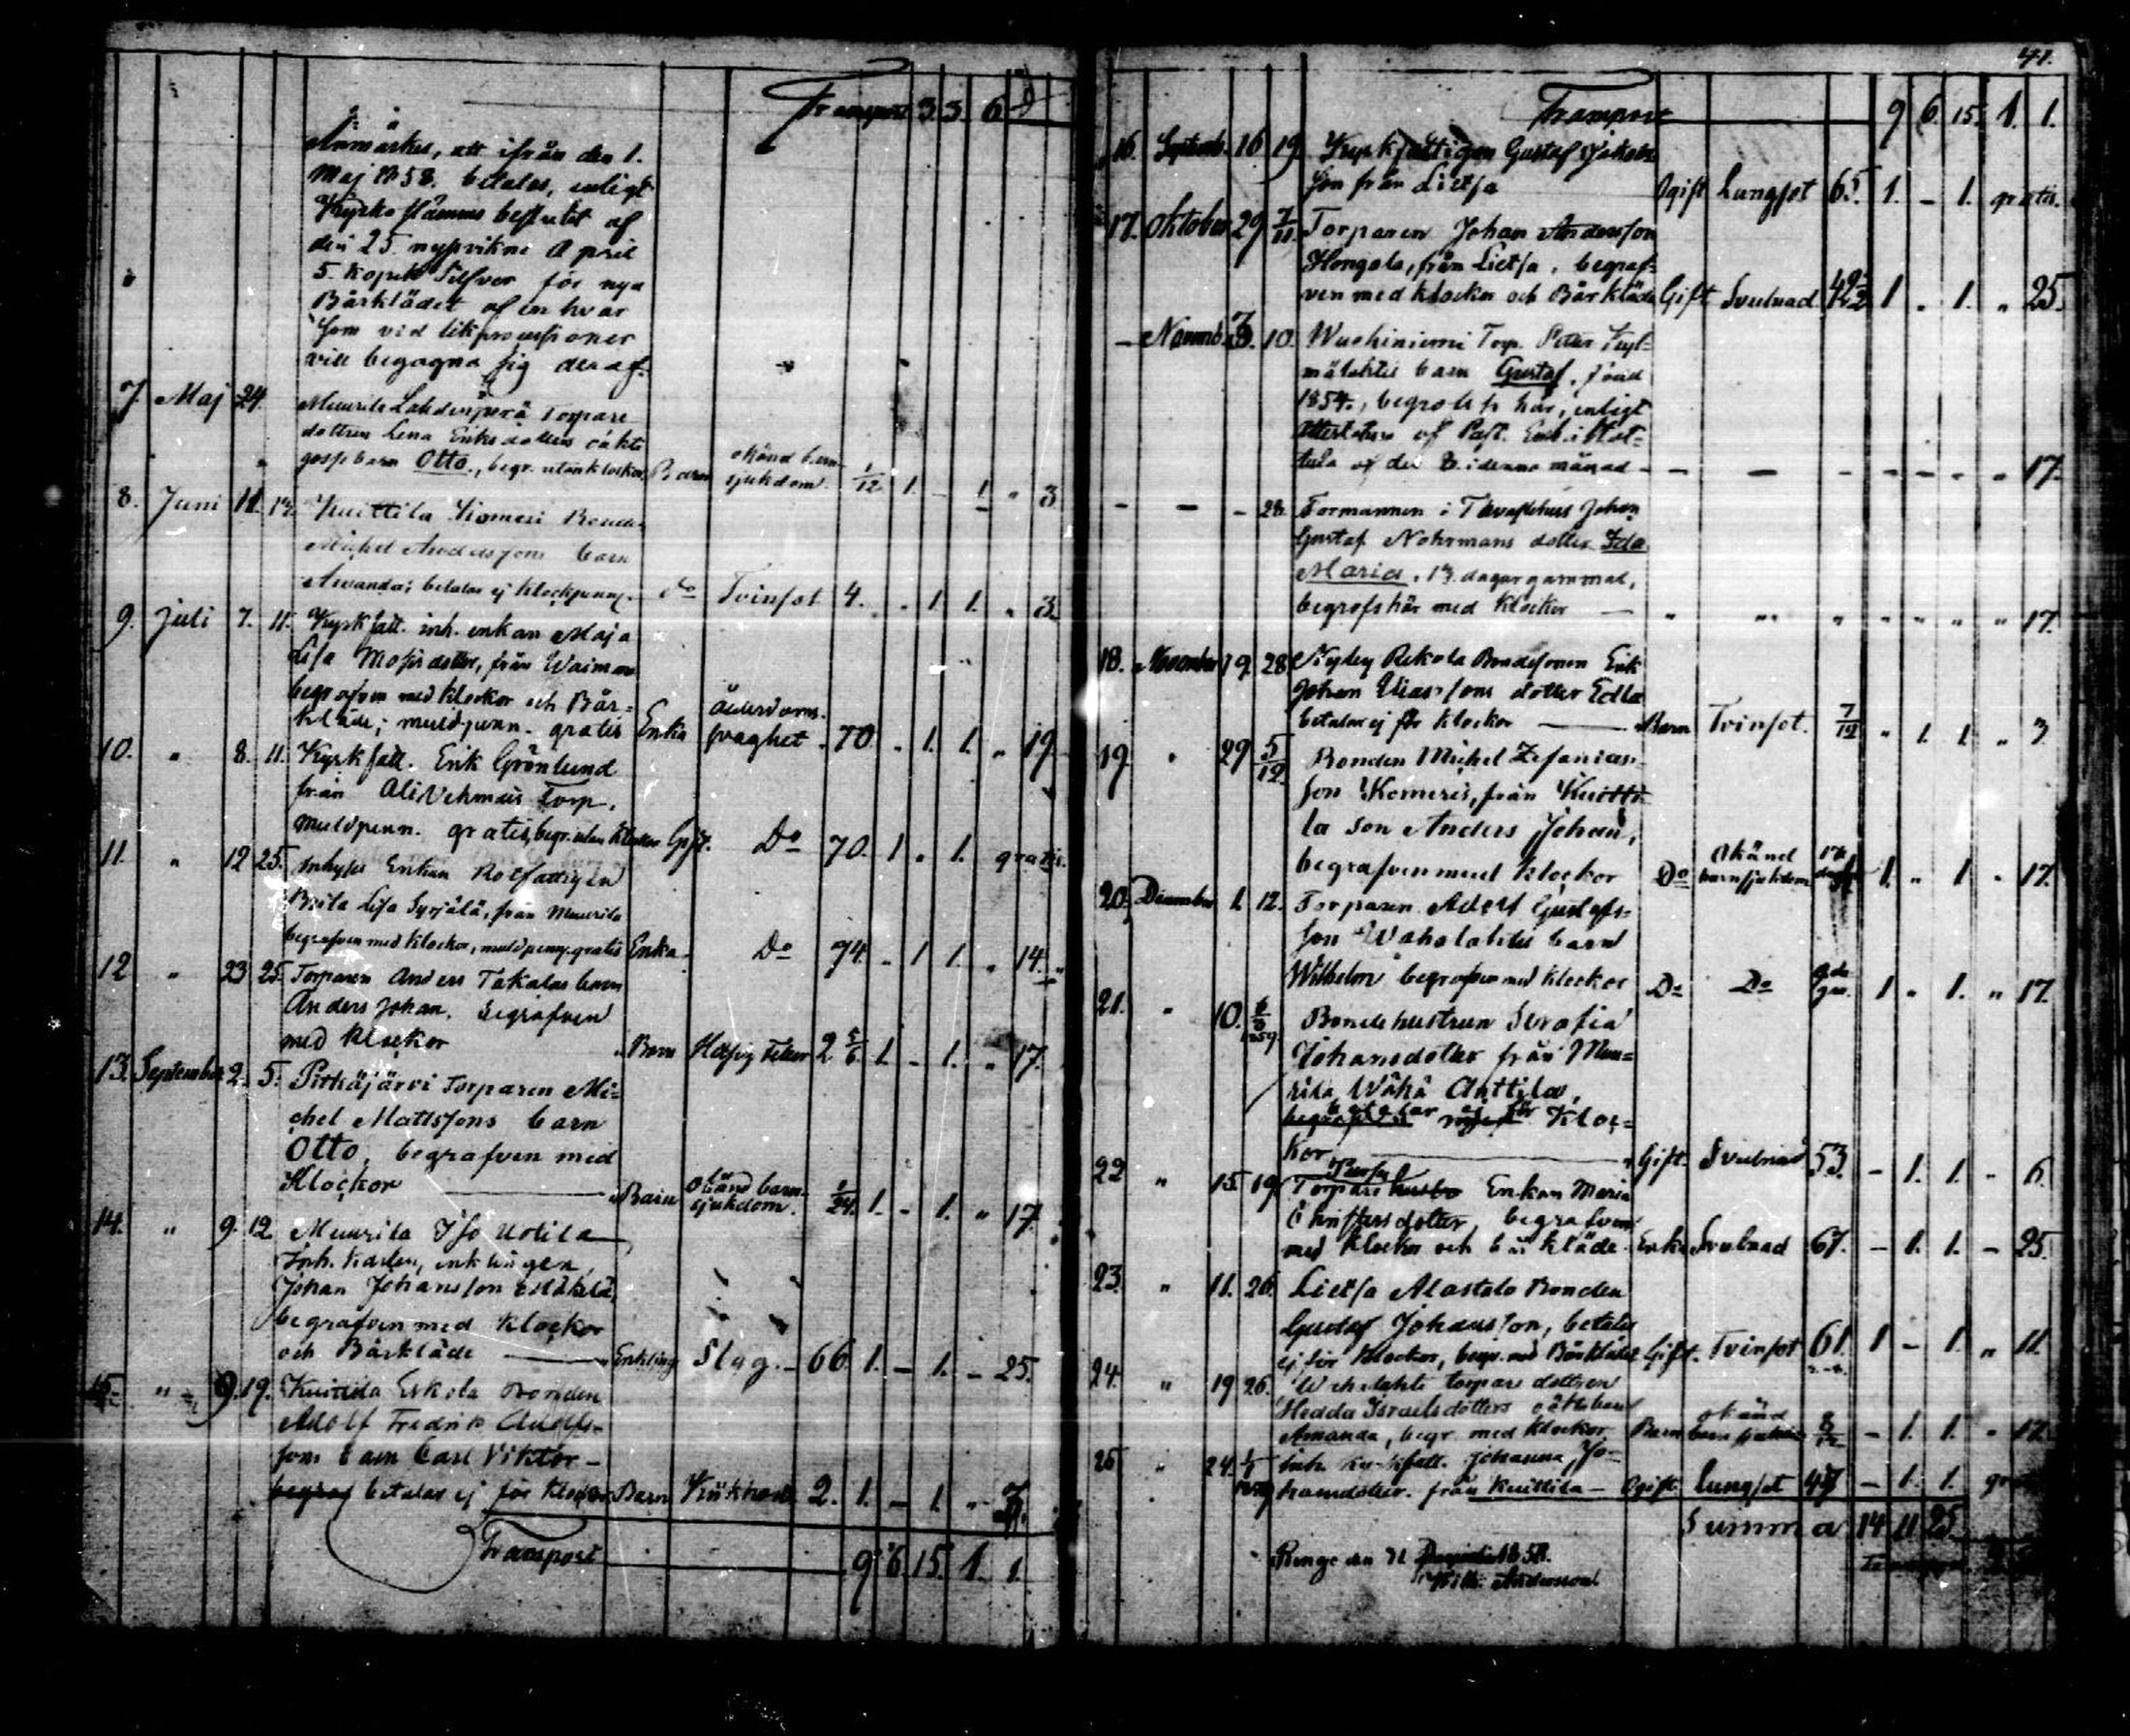 Transport 3. 3. 6
Anmärkes, att ifrån den 1.
Maj 1858. betalas, enligt
Kyrko stämmo beslutet af
den 25 nysvikne April
5. kopek Silfver för nya
Bårklädet af en hvar
som vid likprocessioner
vill begagna sig deraf.
7. Maj 24. Muurila Lahdenperä Torpare
dottren Lena Eriksdotters oäkta
gossebarn Otto, begr. utan klockor Barn okänd barnsjukdom 1/12 1. - 1. " 3
8. Juni 11. 13. Kuittila Komeri Bonde
Michel Anderssons barn
Amanda; betalas ej klockpenng. do Tvinsot 4. " 1. 1. " 3.
9. Juli 7. 11. Kyrkfatt. inh. enkan Maja
Lisa Mosisdotter, från
begrafven med klockor och Bår-
kläde; muldpenn. gratis Enka ålderdoms-svaghet 70. " 1. 1. " 19.
10. " 8. 11. Kyrkfatt. Erik Grönlund
från Torp.
muldpenn. gratis, begr. utan klockor Gift. Do 70. 1 " 1. gratis.
11. " 12 25. Inhyses Enkan Rotfattigen
Brita Lisa Syrjälä, från Muurila
begrafven med klockor, muldpenng. gratis Enka Do 74. " 1 1. " 14.
12 " 23 25. Torparen Anders Takalas barn
Anders Johan, begrafven
med klockor Barn Hetsig Feber 2 5/6 1. - 1. " 17.
13. September 2. 5. Pitkäjärvi Torparen Mi-
chel Mattssons barn
Otto, begrafven med
Klockor Barn Okänd barnsjukdom. 1/24 1. - 1. " 17.
14. " 9. 12. Muurila Iso Uotila
Inh. Karlen, enklingen
Johan Johansson Mäkelä,
begrafven med klockor
och Bårkläde Enkling Slag. 66. 1. - 1. - 25.
15. " 9. 19. Kuittila Eskola Bonden
Adolf Fredrik Adolfs-
sons barn Carl Viktor -
begraf betalas ej för klockor Barn Kikhosta 2. 1. - 1. " 3.
Transport 9 6. 15. 1. 1.
41.
Transport 9 6. 15. 1. 1.
16. Septemb. 16 19. Kyrkfattigen Gustaf Jakobs
son från Lietsa Ogift Lungsot 65. 1. - 1. gratis.
17. Oktober 29 7/11. Torparen Johan Andersson
Hongala, från Lietsa, begraf-
ven med klockor och Bårkläde Gift Svulnad 42 1/2 1 " 1. " 25.
- Novemb. 3. 10. Wuohiniemi Torp. Petter Kyl-
mälahtis barn Gustaf, född
1854., begrofs här, enligt
attestatum af Past. Emb. i Hat-
tula af den 8. i denna månad - - - - - - - 17.
- - - 28. Formannen i Tavastehus Johan
Gustaf Nohrmans dotter Ida
Maria, 13. dagar gammal,
begrofs här med klockor - " " " " " " " 17.
18. November 19. 28 Rekola Bondesonen Erik
Johan Eliassons dotter Edla
betalas ej för klockor Barn Tvinsot. 7/12 " 1. 1. " 3.
19. " 29 5/12 Bonden Michel Zefanias-
son Komeris, från Kuitti-
la son Anders Johan,
begrafven med klockor Do Okänd barnsjukdom 1. " 1 " 17.
20. December 1. 12. Torparen Adolf Gustafs-
son Wahalahtis barn
Wilhelm begrafven med klockor Do Do 1 " 1. " 17.
21. " 10. 6/3 1859 Bondehustrun Serafia
Johansdotter från Muu-
rila Wähä Anttila,
betalar ej för Kloc-
kor Gift. Svulnad 53. - 1. 1. - 6.
22 " 15. 19. Torpare Enkan Maria
Christersdotter, begrafven
med klockor och bårkläde Enka Svulnad 67. - 1. 1. - 25.
23. " 11. 26. Lietsa Alastalo Bonden
Gustaf Johansson, betalar
ej för klockor, begr. med Bårklädet Gift. Tvinsot 61. 1 - 1. " 11.
24. " 19 26. torpare dottren
Hedda Israelsdotters oäkta barn
Amanda, begr. med klockor. Barn okänd barnsjukdom - 1. 1. " 17.
25 " 24. inh. kyrkfatt. Johanna Jo-
hansdotter. från Kuittila - Ogift. Lungsot 47 - 1. 1. gratis
Summa 14 11 25.
Renge den 31 December 1858.